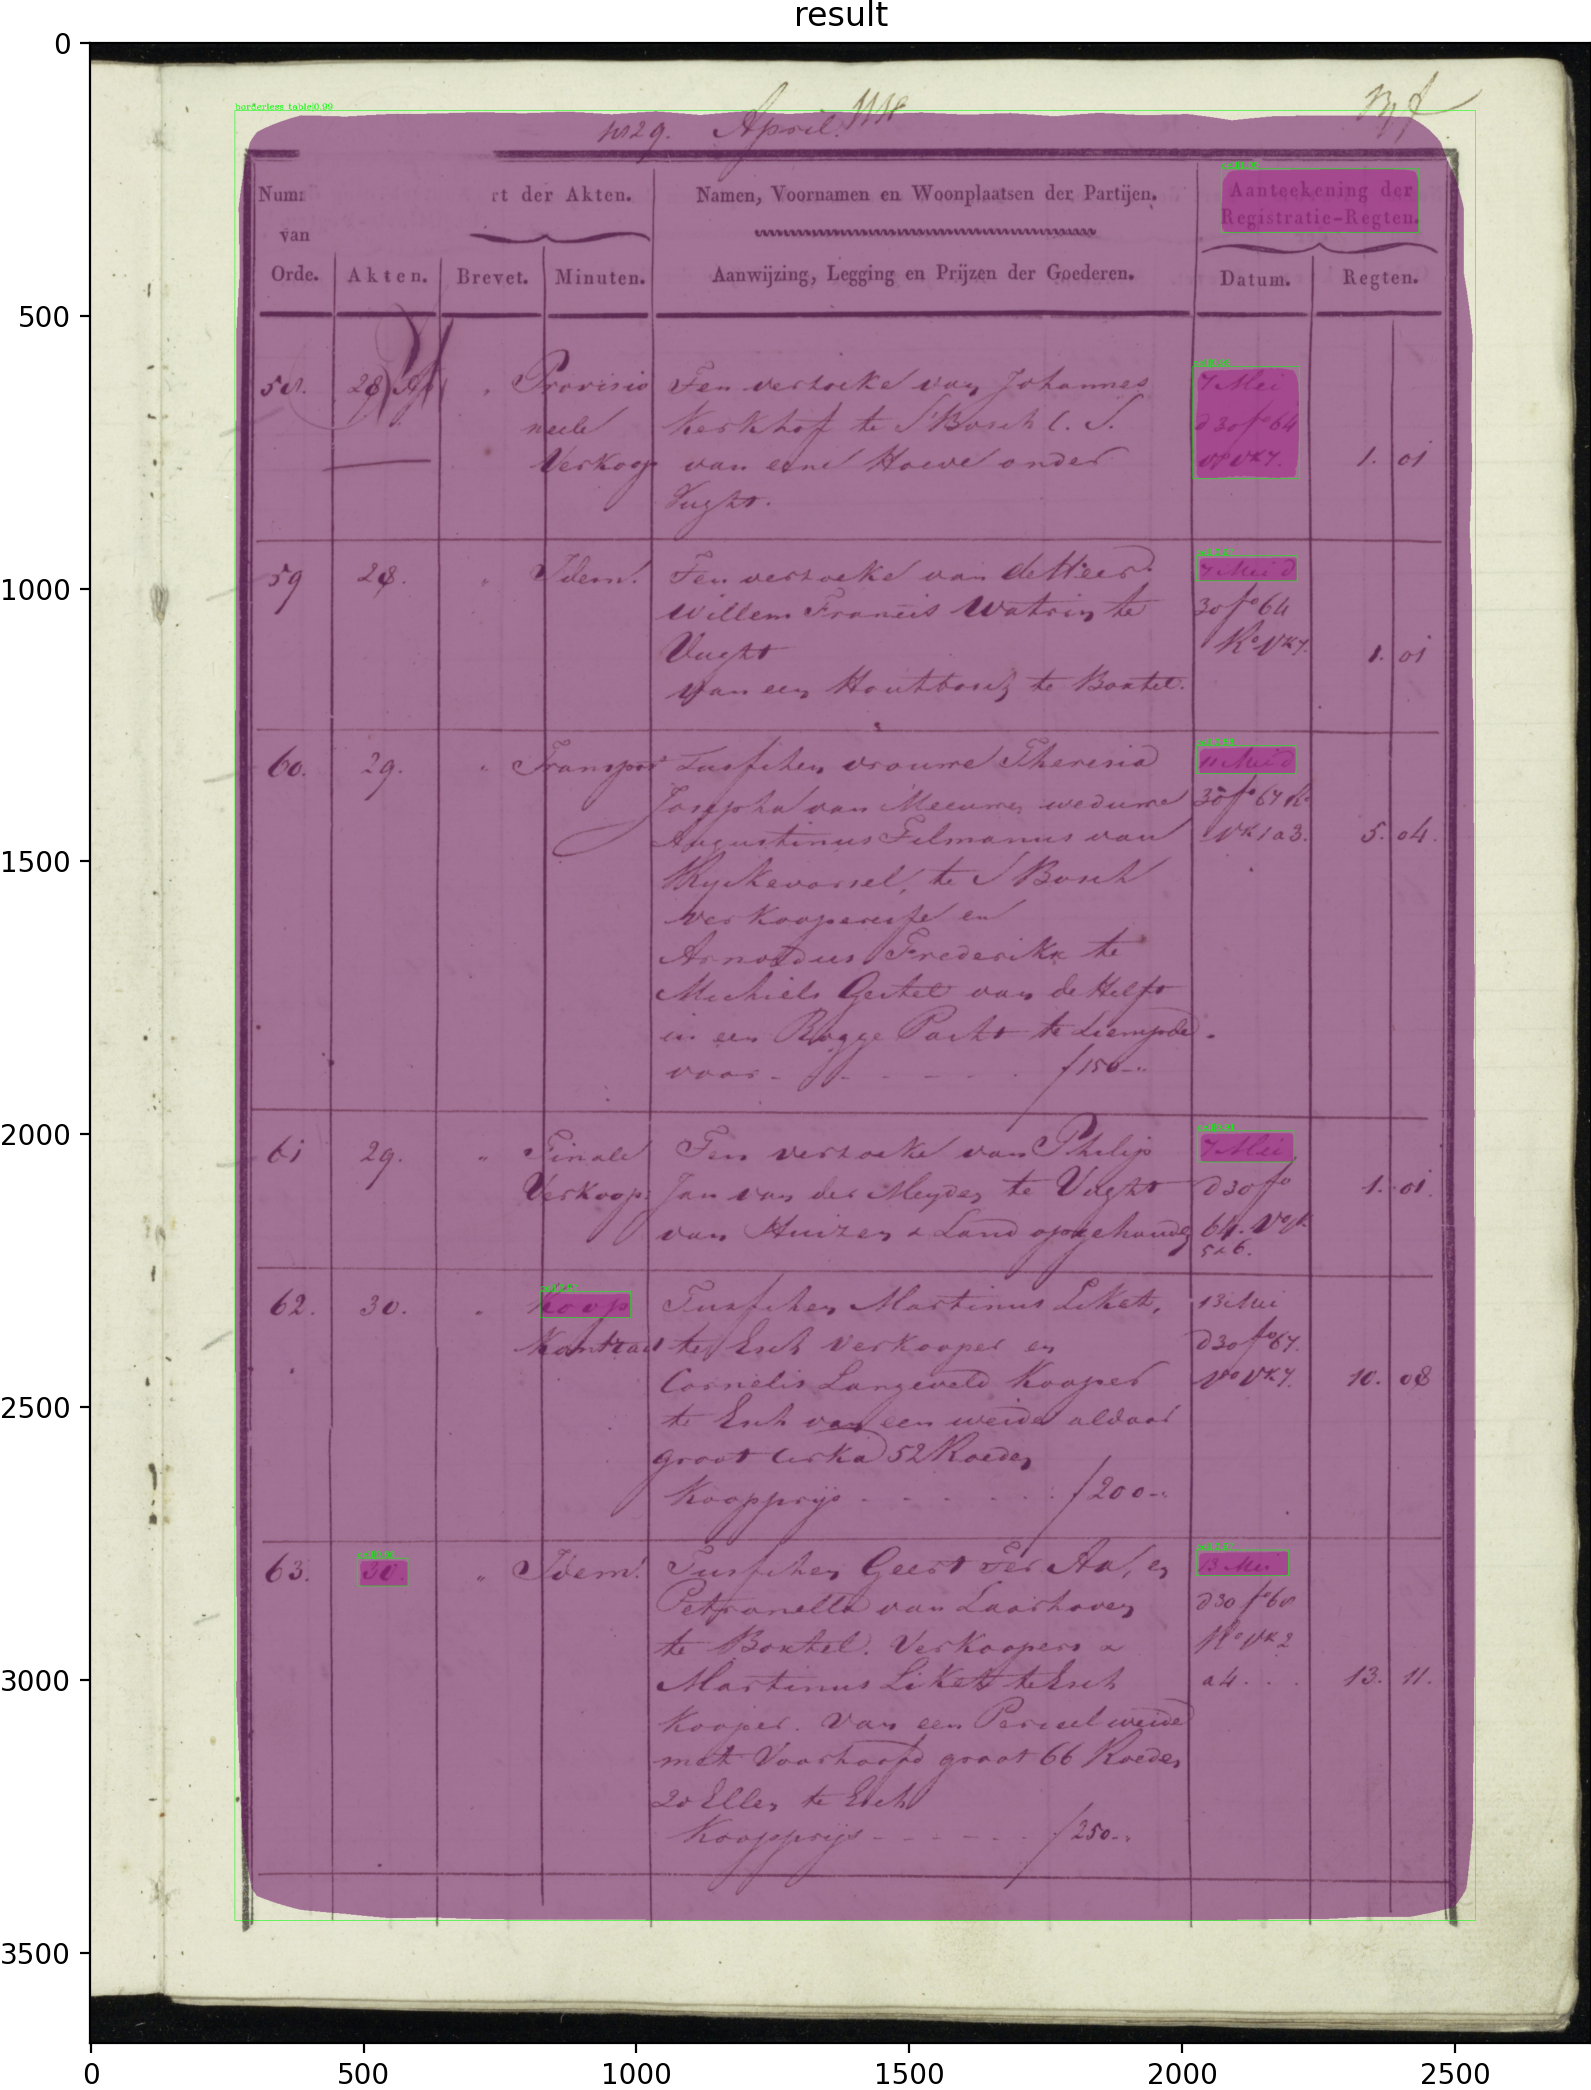 result
borderless table|0.99
1829. April.
Numm
rt der Akten.
Namen, Voornamen en Woonplaatsen der Partijen.
Aanteekening der
Registratie-Regten.
van
Orde.
Akten.
Brevet.
Minuten.
Aanwijzing, Legging en Prijzen der Goederen.
Datum.
Regten.
58. 28 " Provisio
neele
Verkoop
Ten verzoeke van Johannes
Kerkhof te S'Bosch c. S.
van eene Hoeve onder
Vught.
7 Mei
d 30 fo 64
vo vk 7.
1. 01
59 28. " Idem.
Ten verzoeke van de Heer
Willem Francis Watrin te
Vught
van een Houtbosch te Boxtel.
7 Mei d
30 fo 64
Ro VK 7.
1. 01
60. 29. " Transport
Tusschen vrouwe Theresia
Josepha van Meeuwen weduwe
Augustinus Tilmanus van
Ryckevorsel, te S'Bosch
verkooperesse en
Arnoldus Frederikx te
Michiels Gestel van de Helft
in een Rogge Pacht te Liempde.
voor - - - - - ƒ150-"
11 Mei d
30 fo 67 Ro
VK 1 a 3.
5. 04.
61 29. " Finale
Verkoop.
Ten verzoeke van Philip
Jan van der Meyden te Vught
van Huizen & Land opgehouden
7 Mei
d 30 fo
64. Vo vk
5 a 6.
1. 01.
62. 30. " Koop
Kontract
Tusschen Martinus Likett,
te Esch Verkooper en
Cornelis Langeveld Kooper
te Esch van een weide aldaar
groot cirka 52 Roeden
Koopprijs - - - - - ƒ200-"
13 Mei
d 30 fo 67.
Vo VK 7.
10. 08
63. 30. " Idem.
Tusschen Geert Ter Aa, en
Petronella van Laarhoven
te Boxtel. Verkoopers &
Martinus Likett te Esch
Kooper. Van een Perceel weide
met Voorhoofd groot 66 Roeden
20 Ellen te Esch
Koopprijs - - - - - ƒ250-"
13 Mei
d 30 fo 68
Ro VK 2
a 4. . .
13. 11.
0
500
1000
1500
2000
2500
3000
3500
0 500 1000 1500 2000 2500